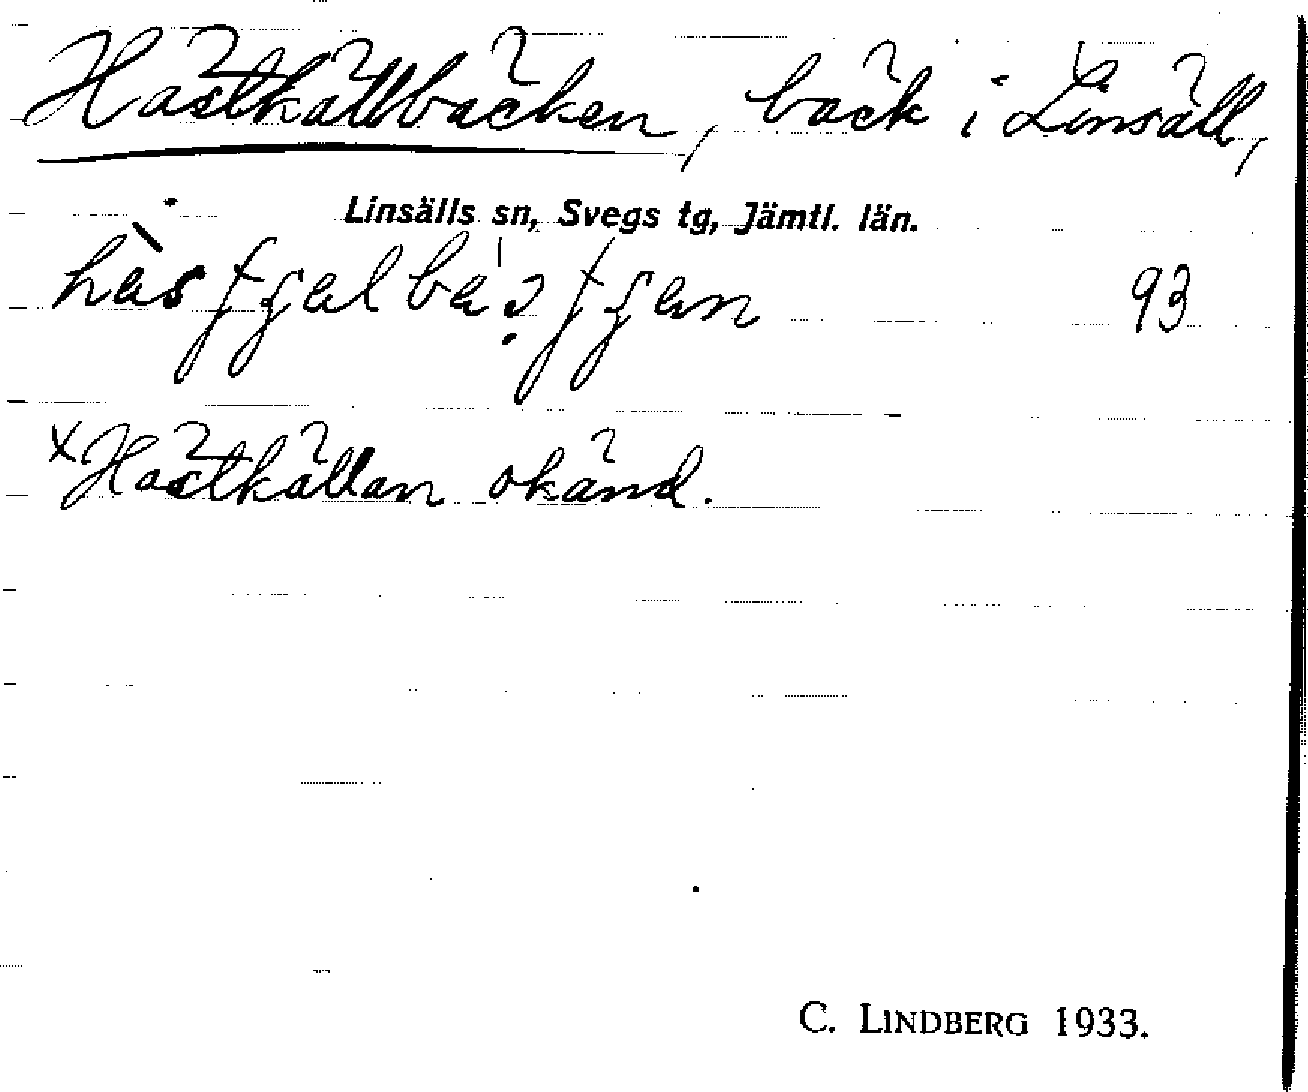 Hästkällbäcken, bäck i Linsäll,
Linsälls sn, Svegs tg, Jämtl. län.
93
xHästkällan okänd.
C. LINDBERG 1933.